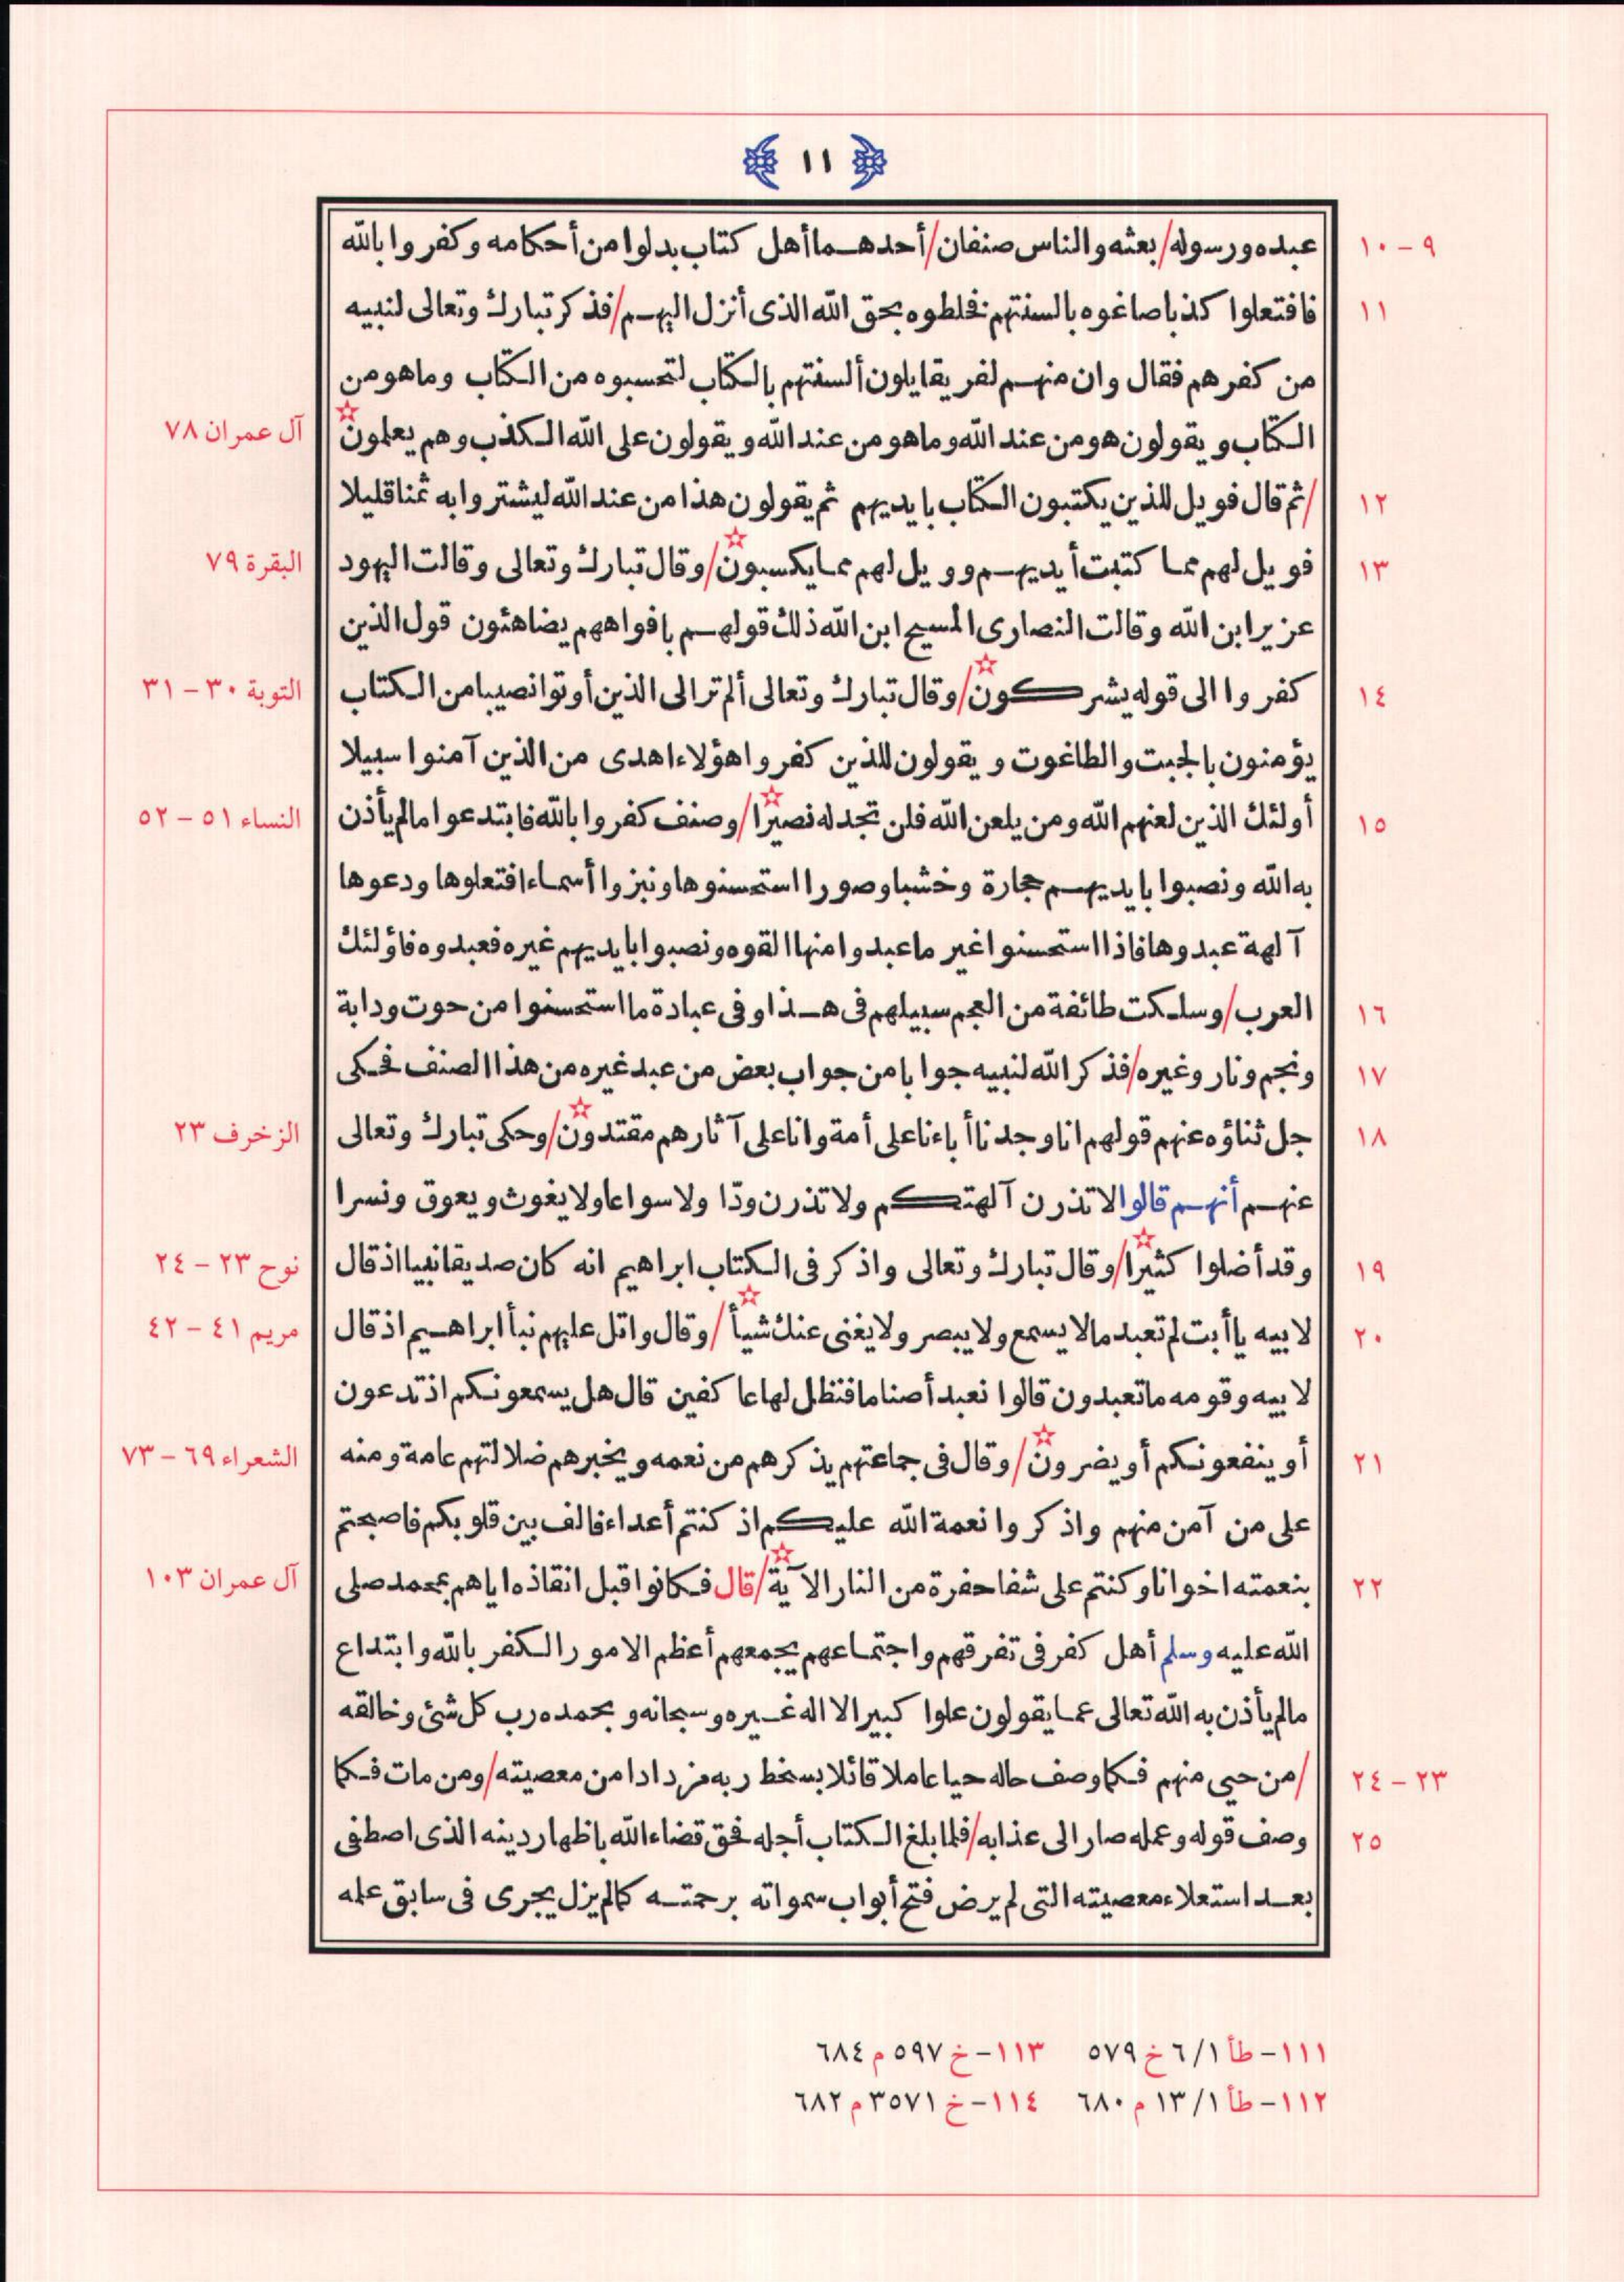 ١١
٩ - ١٠ عبده ورسوله/بعثه والناس صنفان/أحدهما أهل كتاب بدلوا من أحكامه وكفروا بالله
١١ فافتعلوا كذبا صاغوه بالسنتهم فخلطوه بحق الله الذى أنزل اليهم/فذكر تبارك وتعالى لنبيه
من كفرهم فقال وان منهم لفريقا يلون ألسنتهم بالكتاب لتحسبوه من الكتاب وما هو من
الكتاب ويقولون هو من عند الله وما هو من عند الله ويقولون على الله الكذب وهم يعلمون☆ آل عمران ٧٨
١٢ /ثم قال فويل للذين يكتبون الكتاب بايديهم ثم يقولون هذا من عند الله ليشتروا به ثمنا قليلا
١٣ فويل لهم مما كتبت أيديهم وويل لهم مما يكسبون☆/وقال تبارك وتعالى وقالت اليهود البقرة ٧٩
عزير ابن الله وقالت النصارى المسيح ابن الله ذلك قولهم بافواههم يضاهئون قول الذين
١٤ كفروا الى قوله يشركون☆/وقال تبارك وتعالى ألم تر الى الذين أوتوا نصيبا من الكتاب التوبة ٣٠ - ٣١
يؤمنون بالجبت والطاغوت ويقولون للذين كفروا هؤلاء اهدى من الذين آمنوا سبيلا
١٥ أولئك الذين لعنهم الله ومن يلعن الله فلن تجد له نصيرا☆/وصنف كفروا بالله فابتدعوا مالم يأذن النساء ٥١ - ٥٢
به الله ونصبوا بايديهم حجارة وخشبا وصورا استحسنوها ونبزوا أسماء افتعلوها ودعوها
آلهة عبدوها فاذا استحسنوا غير ما عبدوا منها القوه ونصبوا بايديهم غيره فعبدوه فاؤلئك
١٦ العرب/وسلكت طائفة من العجم سبيلهم فى هذا وفى عبادة ما استحسنوا من حوت ودابة
١٧ ونجم ونار وغيره/فذكر الله لنبيه جوابا من جواب بعض من عبد غيره من هذا الصنف فحكى
١٨ جل ثناؤه عنهم قولهم انا وجدنا أباءنا على أمة وانا على آثارهم مقتدون☆/وحكى تبارك وتعالى الزخرف ٢٣
عنهم أنهم قالوا لا تذرن آلهتكم ولا تذرن ودّا ولا سواعا ولا يغوث ويعوق ونسرا
١٩ وقد أضلوا كثيرا☆/وقال تبارك وتعالى واذكر فى الكتاب ابراهيم انه كان صديقا نبيا اذ قال نوح ٢٣ - ٢٤
٢٠ لابيه ياأبت لم تعبد مالا يسمع ولا يبصر ولا يغنى عنك شيأ☆/وقال واتل عليهم نبأ ابراهيم اذ قال مريم ٤١ - ٤٢
لابيه وقومه ما تعبدون قالوا نعبد أصناما فنظل لها عاكفين قال هل يسمعونكم اذ تدعون
٢١ أو ينفعونكم أو يضرون☆/وقال فى جماعتهم يذكرهم من نعمه ويخبرهم ضلالتهم عامة ومنه الشعراء ٦٩ - ٧٣
على من آمن منهم واذكروا نعمة الله عليكم اذ كنتم أعداء فالف بين قلوبكم فاصبحتم
٢٢ بنعمته اخوانا وكنتم على شفا حفرة من النار الآية☆/قال فكانوا قبل انقاذه اياهم بمحمد صلى آل عمران ١٠٣
الله عليه وسلم أهل كفر فى تفرقهم واجتماعهم يجمعهم أعظم الامور الكفر بالله وابتداع
مالم يأذن به الله تعالى عما يقولون علوا كبيرا لا اله غيره وسبحانه وبحمده رب كل شئ وخالقه
٢٣ - ٢٤ /من حيى منهم فكما وصف حاله حيا عاملا قائلا بسخط ربه مزدادا من معصيته/ومن مات فكما
٢٥ وصف قوله وعمله صار الى عذابه/فلما بلغ الكتاب أجله فحق قضاء الله باظهار دينه الذى اصطفى
بعد استعلاء معصيته التى لم يرض فتح أبواب سمواته برحمته كما لم يزل يجرى فى سابق علمه
١١١- طأ ٦/١ خ ٥٧٩ ١١٣- خ ٥٩٧ م ٦٨٤
١١٢- طأ ١٣/١ م ٦٨٠ ١١٤- خ ٣٥٧١ م ٦٨٢